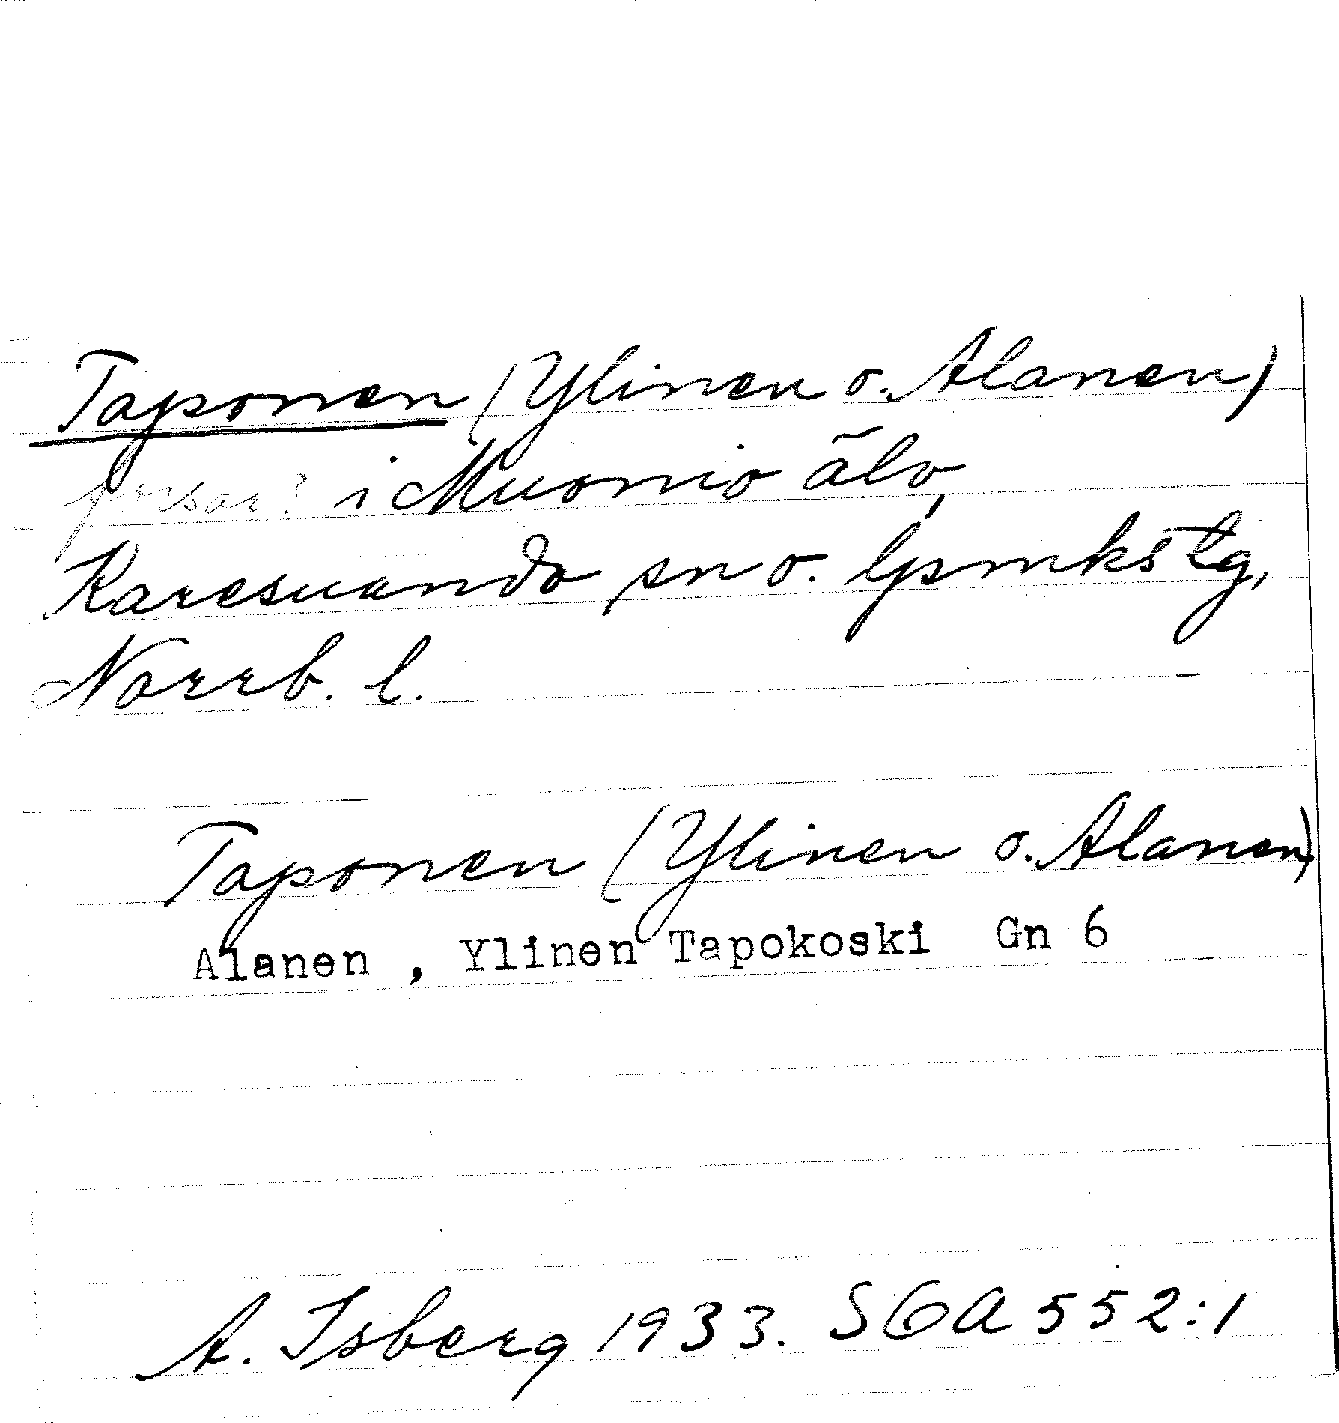 Taponen (Ylinen o. Alanen)
forsar? i Muonio älv,
Karesuando sn o. lpmkstg,
Norrb. l.
Taponen (Ylinen o. Alanen)
Alanen , Ylinen Tapokoski Gn 6
A. Isberg 1933. SOA 552:1